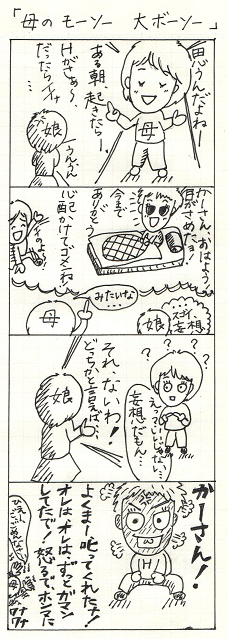 「母の モーソー 大ボーソー」
思うんだよねー
ある朝、起きたらー、
Hがさぁ〜、
だったらイイ
な…
母
娘
うんうん
かーさん、おはよう!
目がさめたョ!
今まで
ありがとう
心配かけてゴメンね!
いいのョ!
みたいな…
母
娘
スゴイ
妄想
?
?
?
?
えっ いいじゃない…
妄想だもん…
それ、ないわ!
どっちかと言えば…
娘
かーさん!
よくまー叱ってくれたナ!
オレはオレは、ずっとガマン
してたで! 怒るで、ホンマに
H
母
ワナ
ワナ